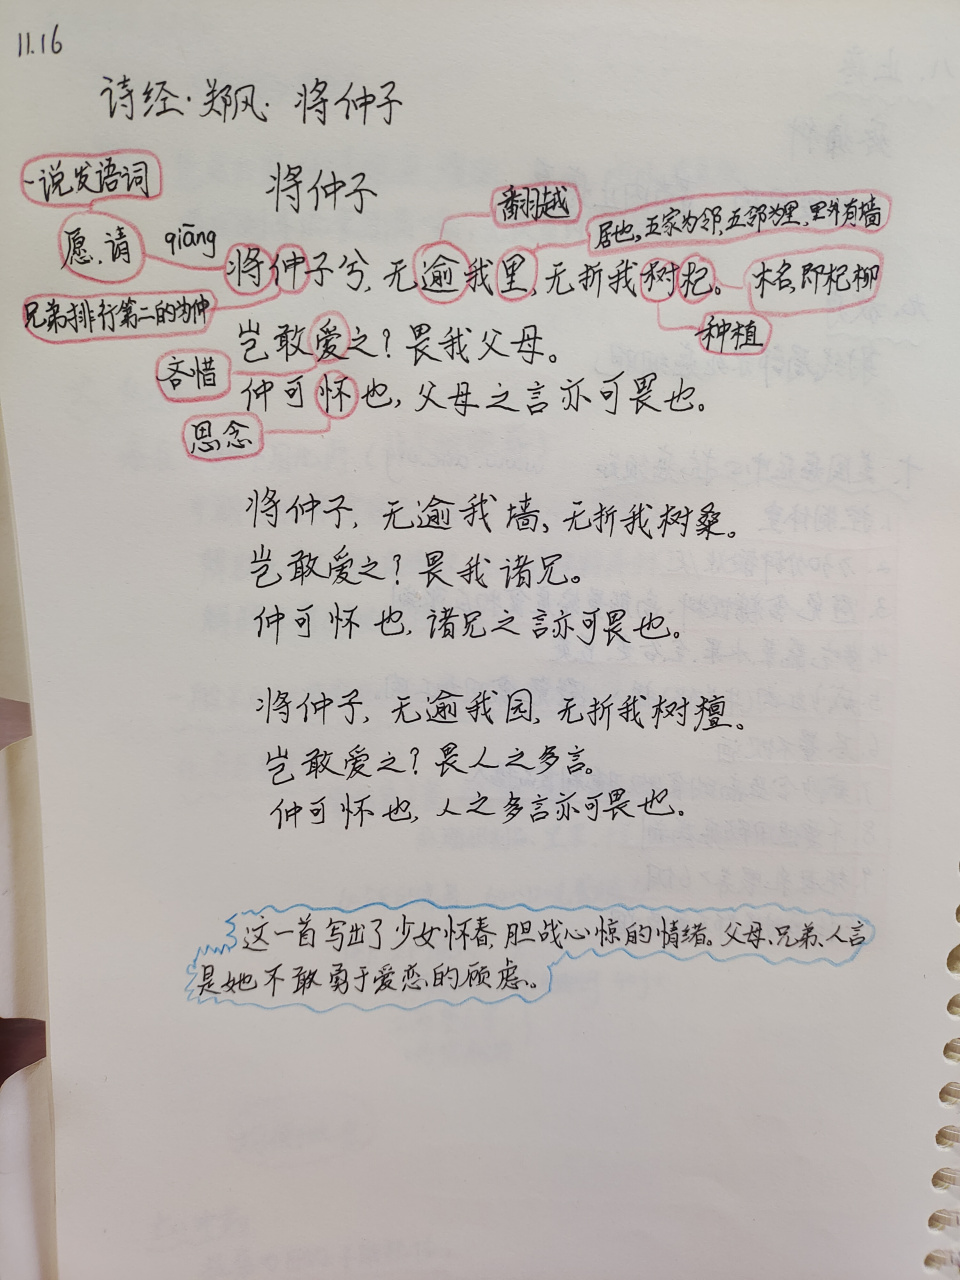 11.16
诗经·郑风·将仲子
将仲子
一说发语词
愿,请
qiāng
翻越
居也,五家为邻,五邻为里,里外有墙
将仲子兮,无逾我里,无折我树杞。
木名,即杞柳
兄弟排行第二的为仲
种植
岂敢爱之?畏我父母。
吝惜
仲可怀也,父母之言亦可畏也。
思念
将仲子,无逾我墙,无折我树桑。
岂敢爱之?畏我诸兄。
仲可怀也,诸兄之言亦可畏也。
将仲子,无逾我园,无折我树檀。
岂敢爱之?畏人之多言。
仲可怀也,人之多言亦可畏也。
这一首写出了少女怀春,胆战心惊的情绪。父母、兄弟、人言
是她不敢勇于爱恋的顾虑。